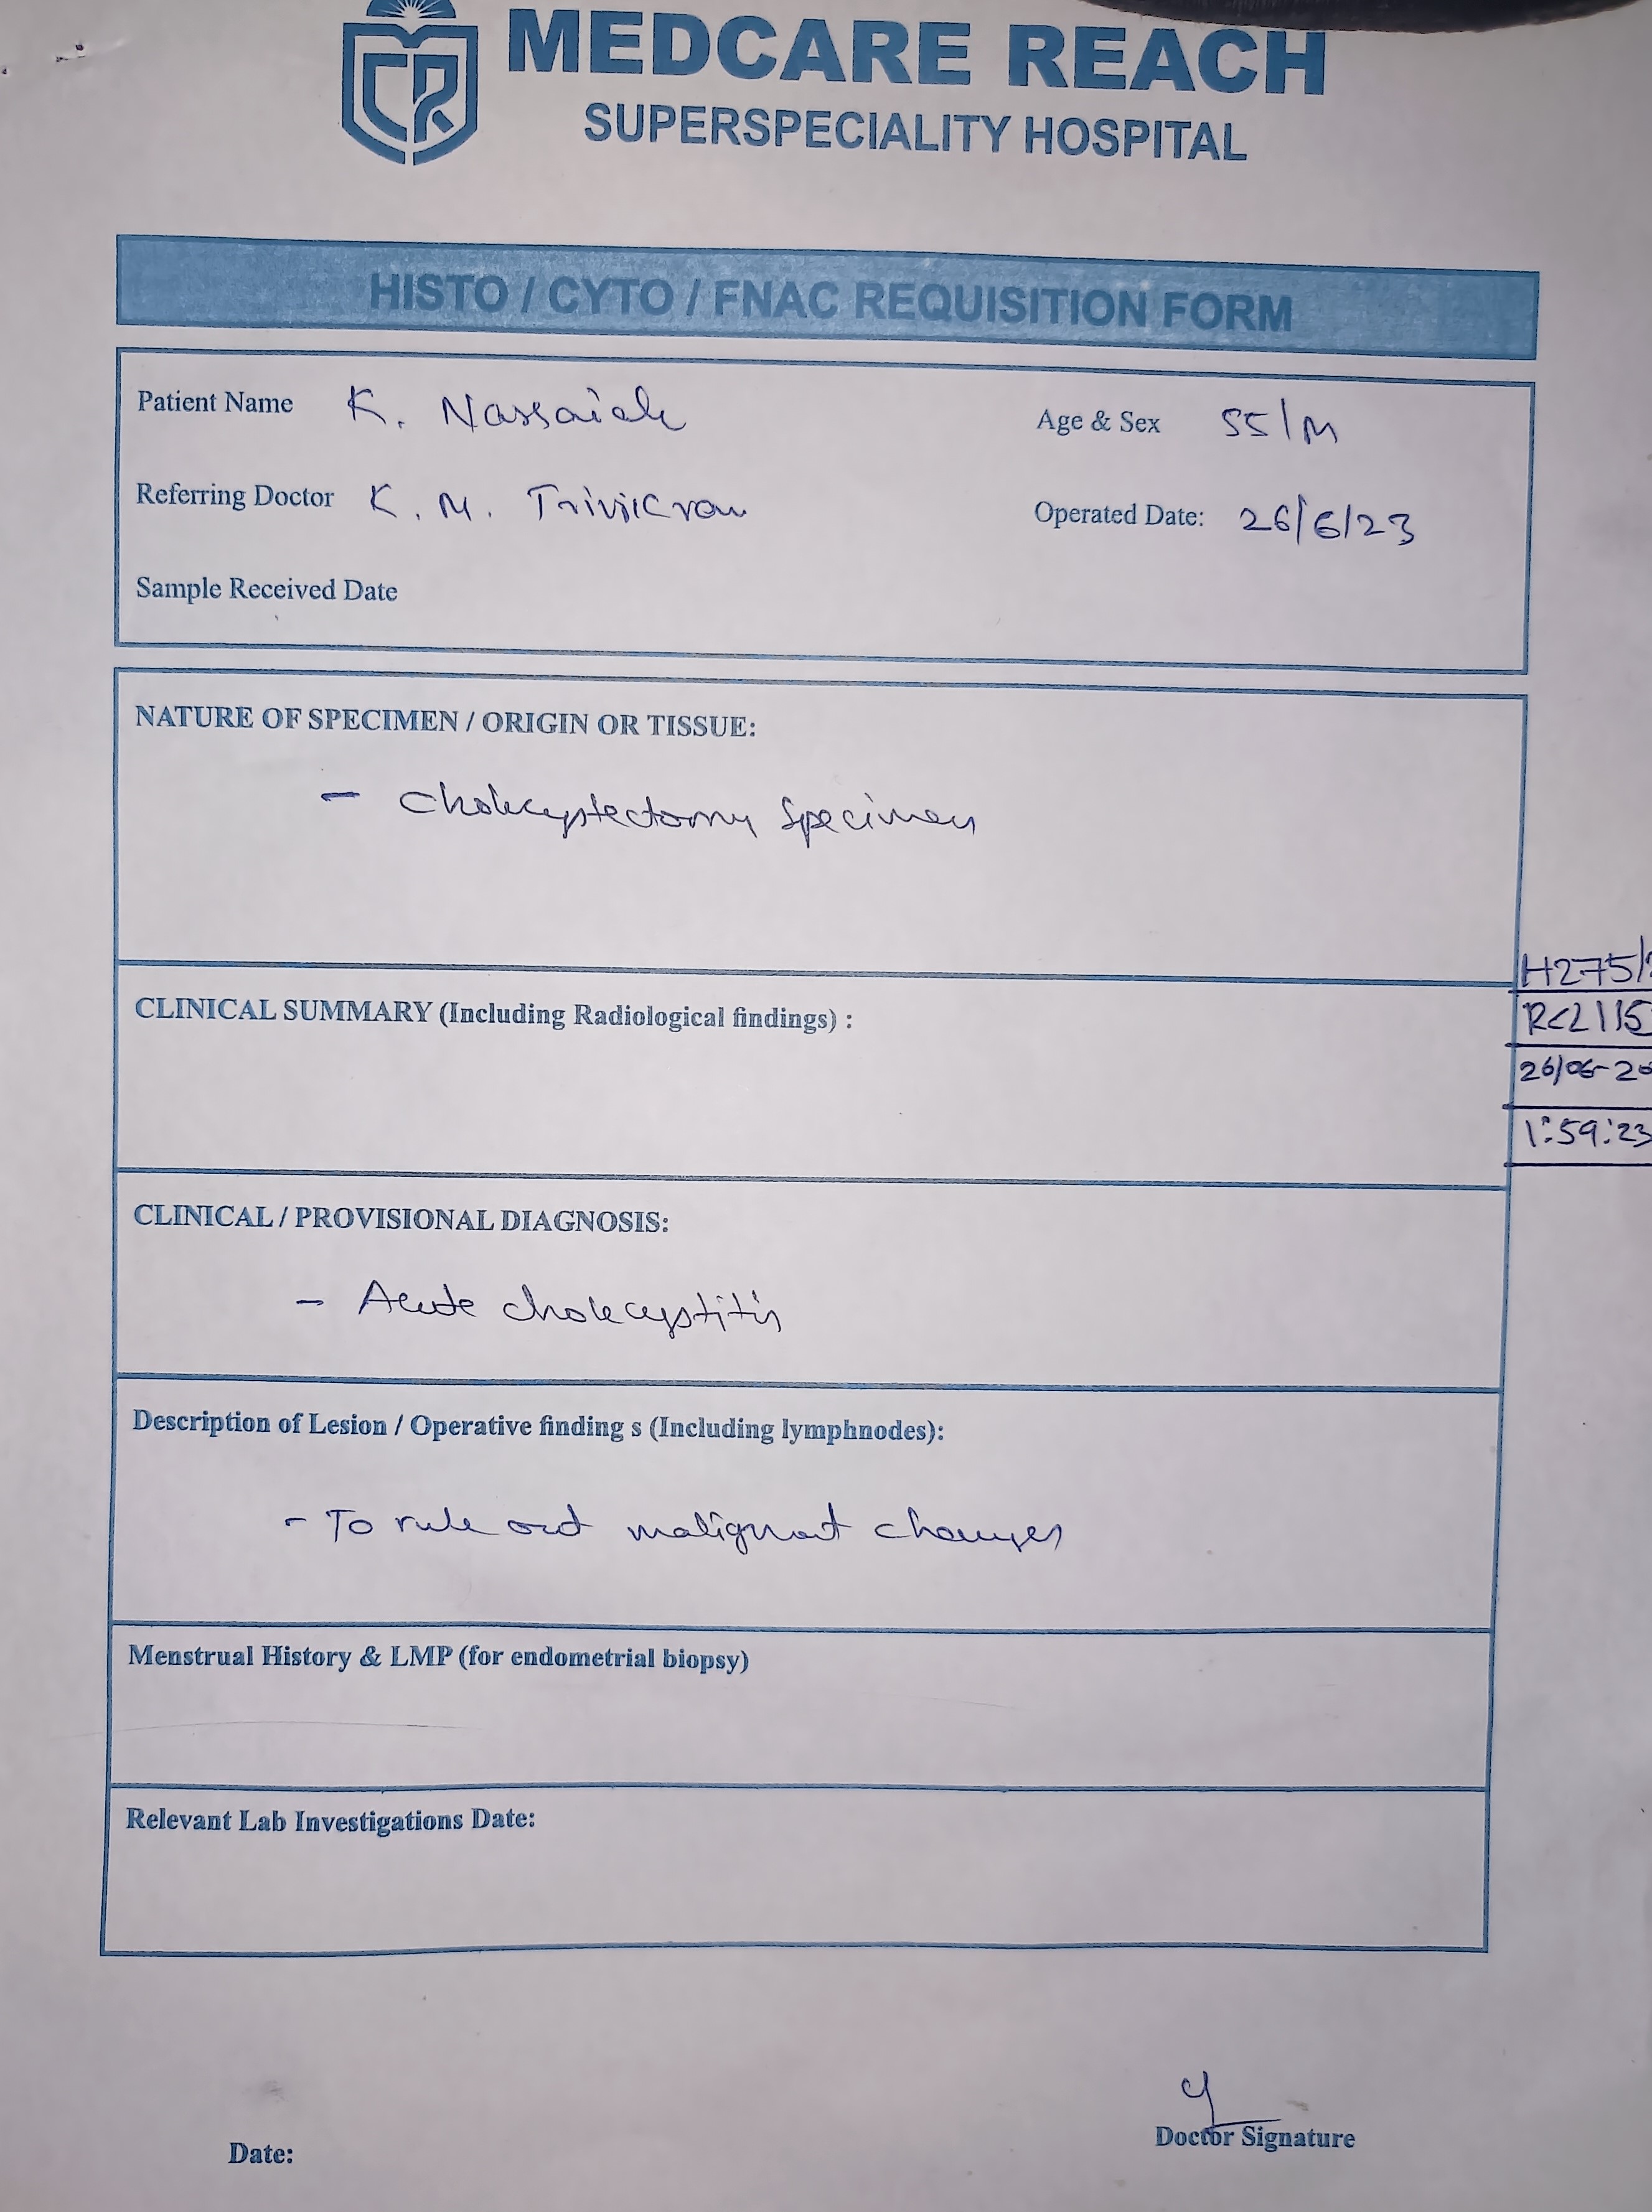 MEDCARE REACH
SUPERSPECIALITY HOSPITAL
HISTO / CYTO / FNAC REQUISITION FORM
Patient Name K. Narsaiah
Age & Sex 55/M
Referring Doctor K. M. Trivikram
Operated Date: 26/6/23
Sample Received Date
NATURE OF SPECIMEN / ORIGIN OR TISSUE:
- Cholecystectomy Specimen
H275/
RCL115
26/06-20
1:59:23
CLINICAL SUMMARY (Including Radiological findings) :
CLINICAL / PROVISIONAL DIAGNOSIS:
- Acute cholecystitis
Description of Lesion / Operative finding s (Including lymphnodes):
- To rule out malignant changes
Menstrual History & LMP (for endometrial biopsy)
Relevant Lab Investigations Date:
Date:
Doctor Signature